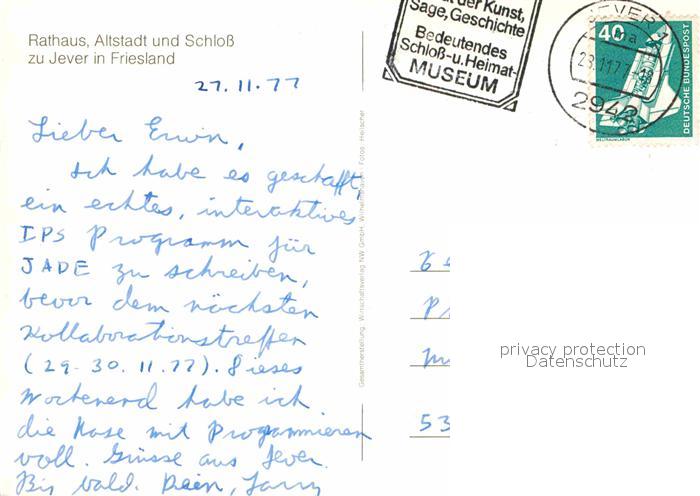 Rathaus, Altstadt und Schloß
zu Jever in Friesland
der Kunst,
Sage, Geschichte
Bedeutendes
Schloß-u. Heimat-
MUSEUM
JEVER 1
28.11.77-18
2942
40
DEUTSCHE BUNDESPOST
WELTRAUMLABOR
27.11.77
Lieber Erwin,
Ich habe es geschafft,
ein echtes, interaktives
IPS Programm für
JADE zu schreiben,
bevor dem nächsten
Kollaborationstreffen
(29-30.11.77). Dieses
Wochenend habe ich
die Nase mit Programmieren
voll. Grüsse aus Jever.
Bis bald. Dein, Larry
Gesamtherstellung: Wirtschaftsverlag NW GmbH, Fotos:
53
privacy protection
Datenschutz